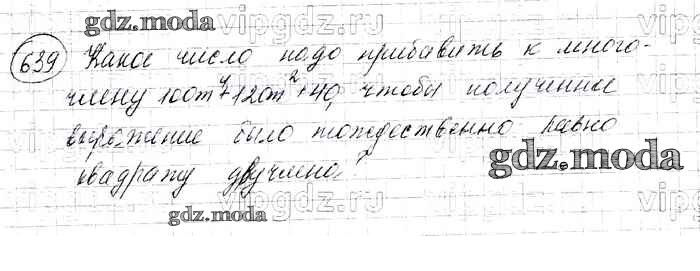 gdz.moda vipgdz.ru
639 Какое число надо прибавить к много-
члену 100m⁴+120m²+40, чтобы полученное
vipgdz.ru
выражение было тождественно равно
gdz.moda
квадрату двучлена?
vipgdz.ru
gdz.moda